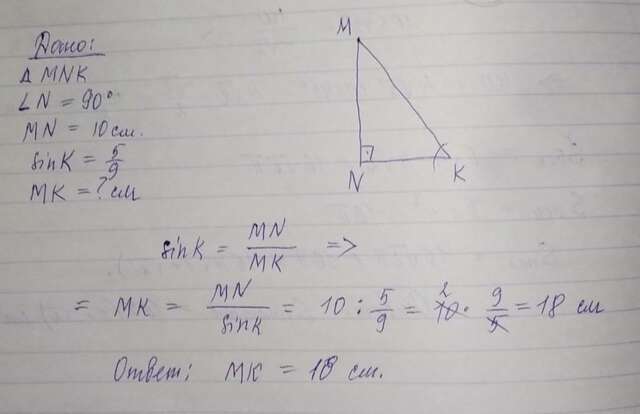 Дано:
Δ MNK
∠N = 90°
MN = 10 см.
sinK = 5/9
MK = ? см
M
N
K
sinK = MN/MK =>
= MK = MN/sinK = 10 : 5/9 = 10 2 · 9/5 = 18 см
Ответ: MK = 18 см.